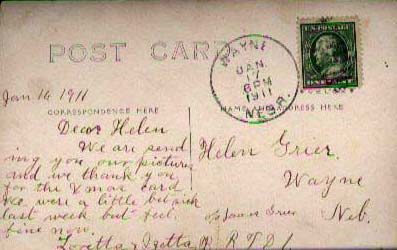 POST CARD
WAYNE
JAN.
17
6 PM
1911
NEBR.
Jan 16 1911
CORRESPONDENCE HERE
NAME AND ADDRESS HERE
Dear Helen
We are send
ing you our picture
and we thank you
for the Xmas card.
We were a little bit sick
last week but feel
fine now.
Loretta &
Helen Grier.
Wayne
Neb.
c/o James Grier
R T D 1